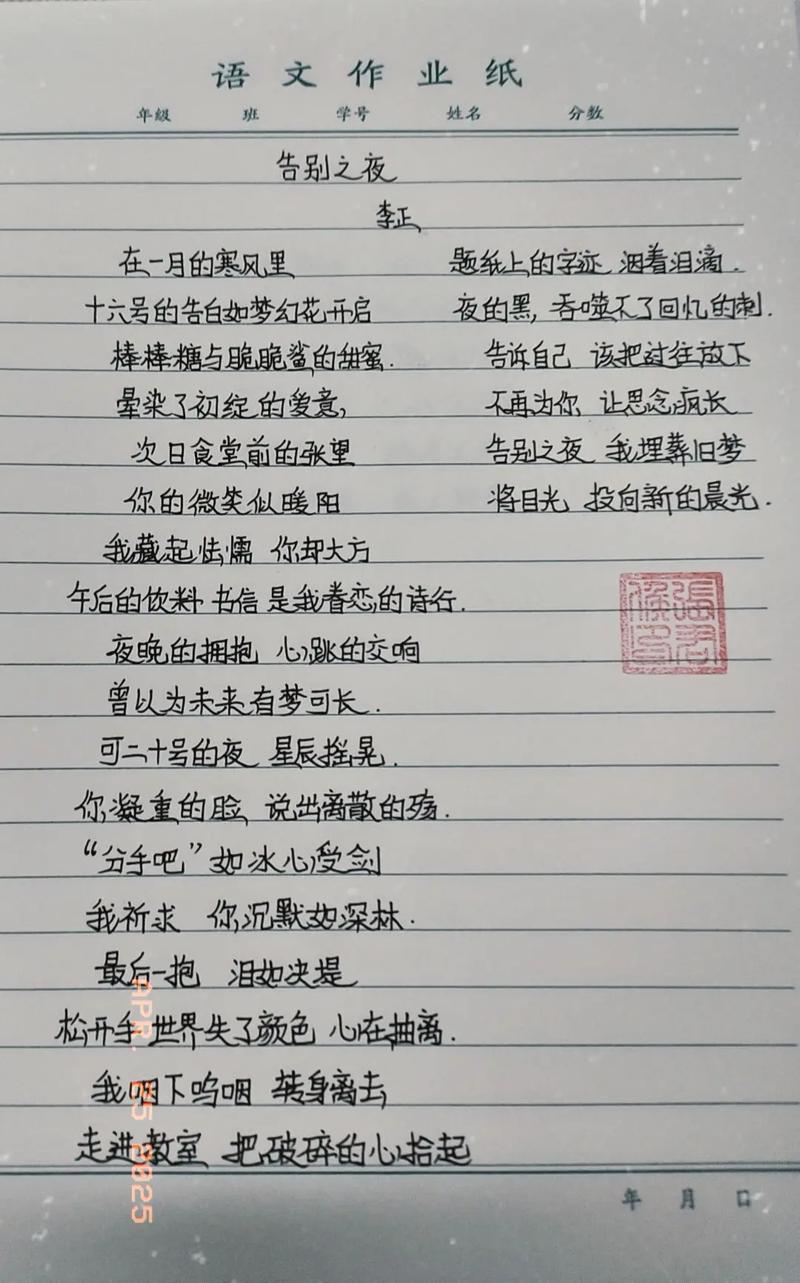 语文作业纸
年级 班 学号 姓名 分数
告别之夜
李正
在一月的寒风里
十六号的告白如梦幻花开启
棒棒糖与脆脆鲨的甜蜜.
晕染了初绽的爱意,
次日食堂前的张望
你的微笑似暖阳
我藏起怯懦 你却大方
午后的饮料 书信 是我眷恋的诗行.
夜晚的拥抱 心跳的交响
曾以为未来有梦可长.
可二十号的夜 星辰摇晃.
你凝重的脸 说出离散的殇.
“分手吧”如冰心受剑
我祈求 你沉默如深林.
最后一抱 泪如决堤
松开手 世界失了颜色 心在抽离.
我咽下呜咽 转身离去
走进教室 把破碎的心拾起
题纸上的字迹 洇着泪滴.
夜的黑, 吞噬不了回忆的刺.
告诉自己 该把过往放下
不再为你 让思念疯长
告别之夜 我埋葬旧梦
将目光 投向新的晨光.
年 月 日
APR. 25 2025